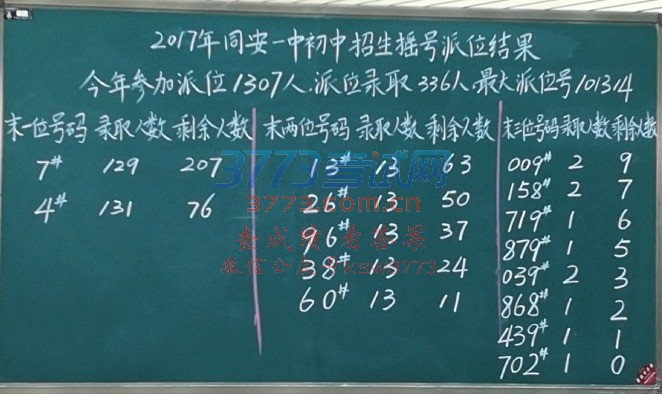 2017年同安一中初中招生摇号派位结果
今年参加派位1307人.派位录取336人.最大派位号101314
末一位号码 录取人数 剩余人数
7# 129 207
4# 131 76
末两位号码 录取人数 剩余人数
3# 63
26# 13 50
96# 13 37
38# 13 24
60# 13 11
末三位号码 录取人数 剩余人数
009# 2 9
158# 2 7
719# 1 6
879# 1 5
039# 2 3
868# 1 2
439# 1 1
702# 1 0
3773考试网
3773.com.cn
查成绩 看答案